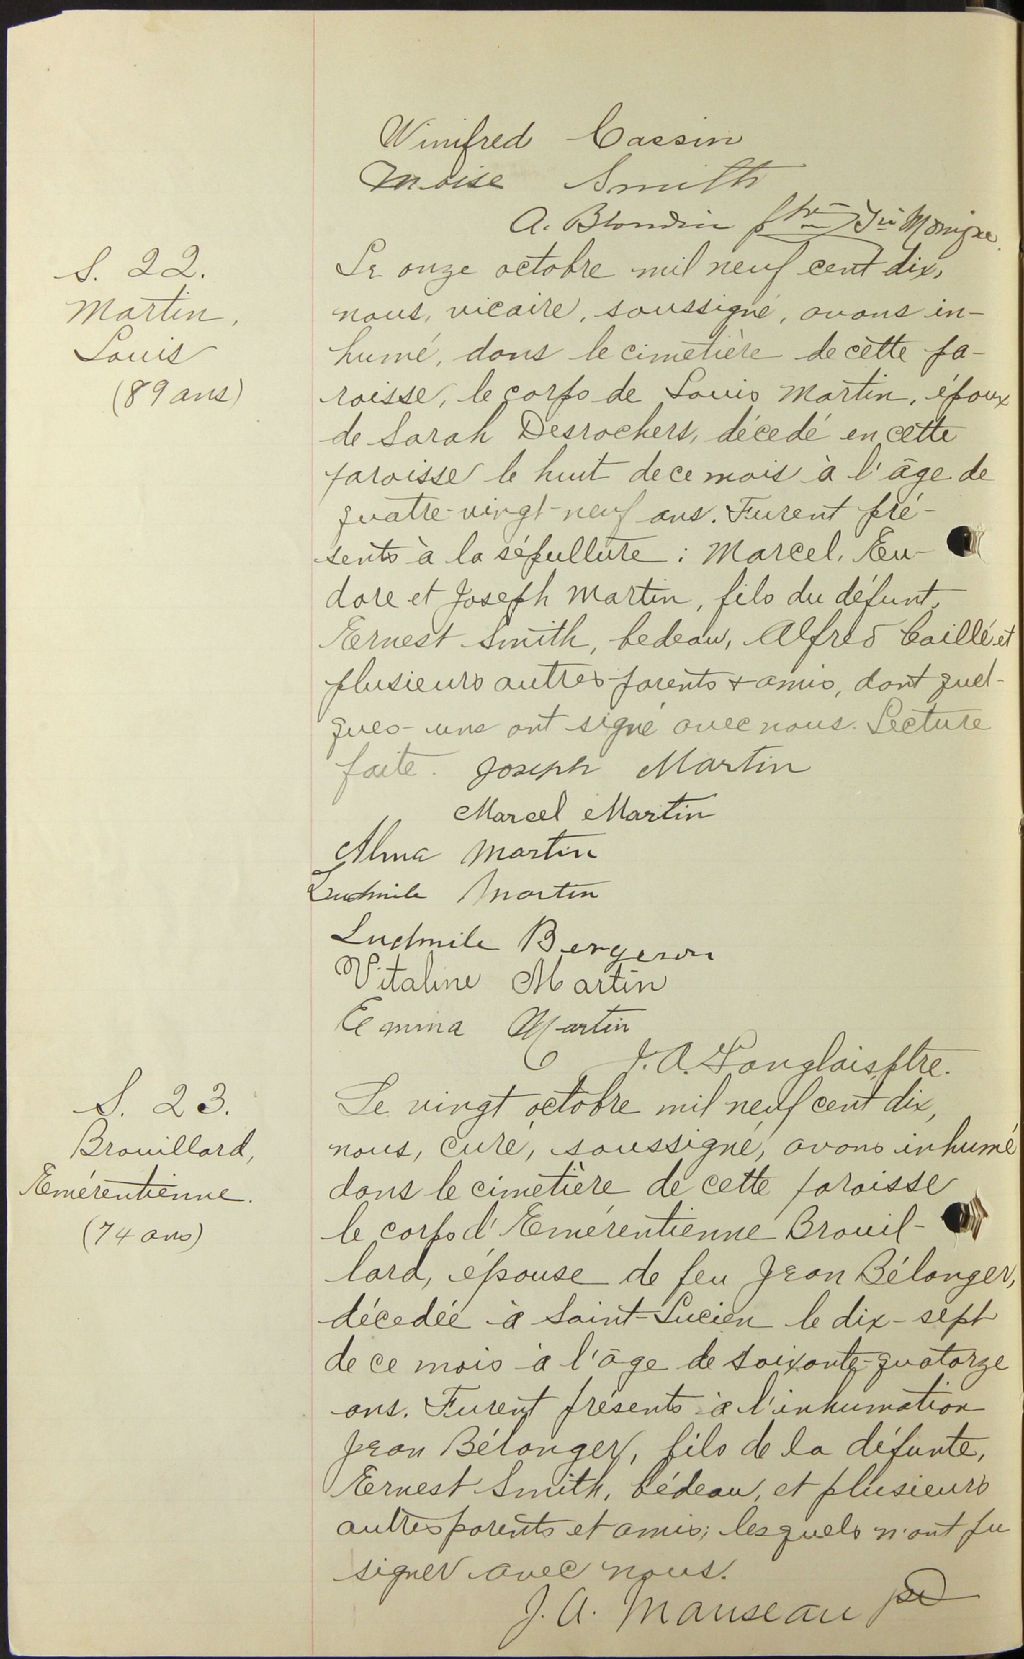 Winifred Cassin
Moise Smith
A. Blondin ptre
S. 22.
Martin,
Louis
(89 ans)
Le onze octobre mil neuf cent dix,
nous, vicaire, soussigné, avons in-
humé, dans le cimetière de cette pa-
roisse, le corps de Louis Martin, époux
de Sarah Desrochers, décedé en cette
paroisse le huit de ce mois à l'âge de
quatre-vingt-neuf ans. Furent pré-
sents à la sépulture : Marcel, Eu-
dore et Joseph Martin, fils du défunt,
Ernest Smith, bedeau, Alfred Caillé et
plusieurs autres parents & amis, dont quel-
ques-uns ont signé avec nous. Lecture
faite. Joseph Martin
Marcel Martin
Alma Martin
Ludmile Martin
Ludmile Bergeron
Vitaline Martin
Emma Martin
J. A. Langlais, ptre.
S. 23.
Brouillard,
Emérentienne.
(74 ans)
Le vingt octobre mil neuf cent dix,
nous, curé, soussigné, avons inhumé
dans le cimetière de cette paroisse
le corps d'Emérentienne Brouil-
lard, épouse de feu Jean Bélanger,
décedée à Saint-Lucien le dix-sept
de ce mois à l'âge de soixante-quatorze
ans. Furent présents à l'inhumation
Jean Bélanger, fils de la défunte,
Ernest Smith, bédeau, et plusieurs
autres parents et amis; lesquels n'ont pu
signer avec nous.
J. A. Manseau